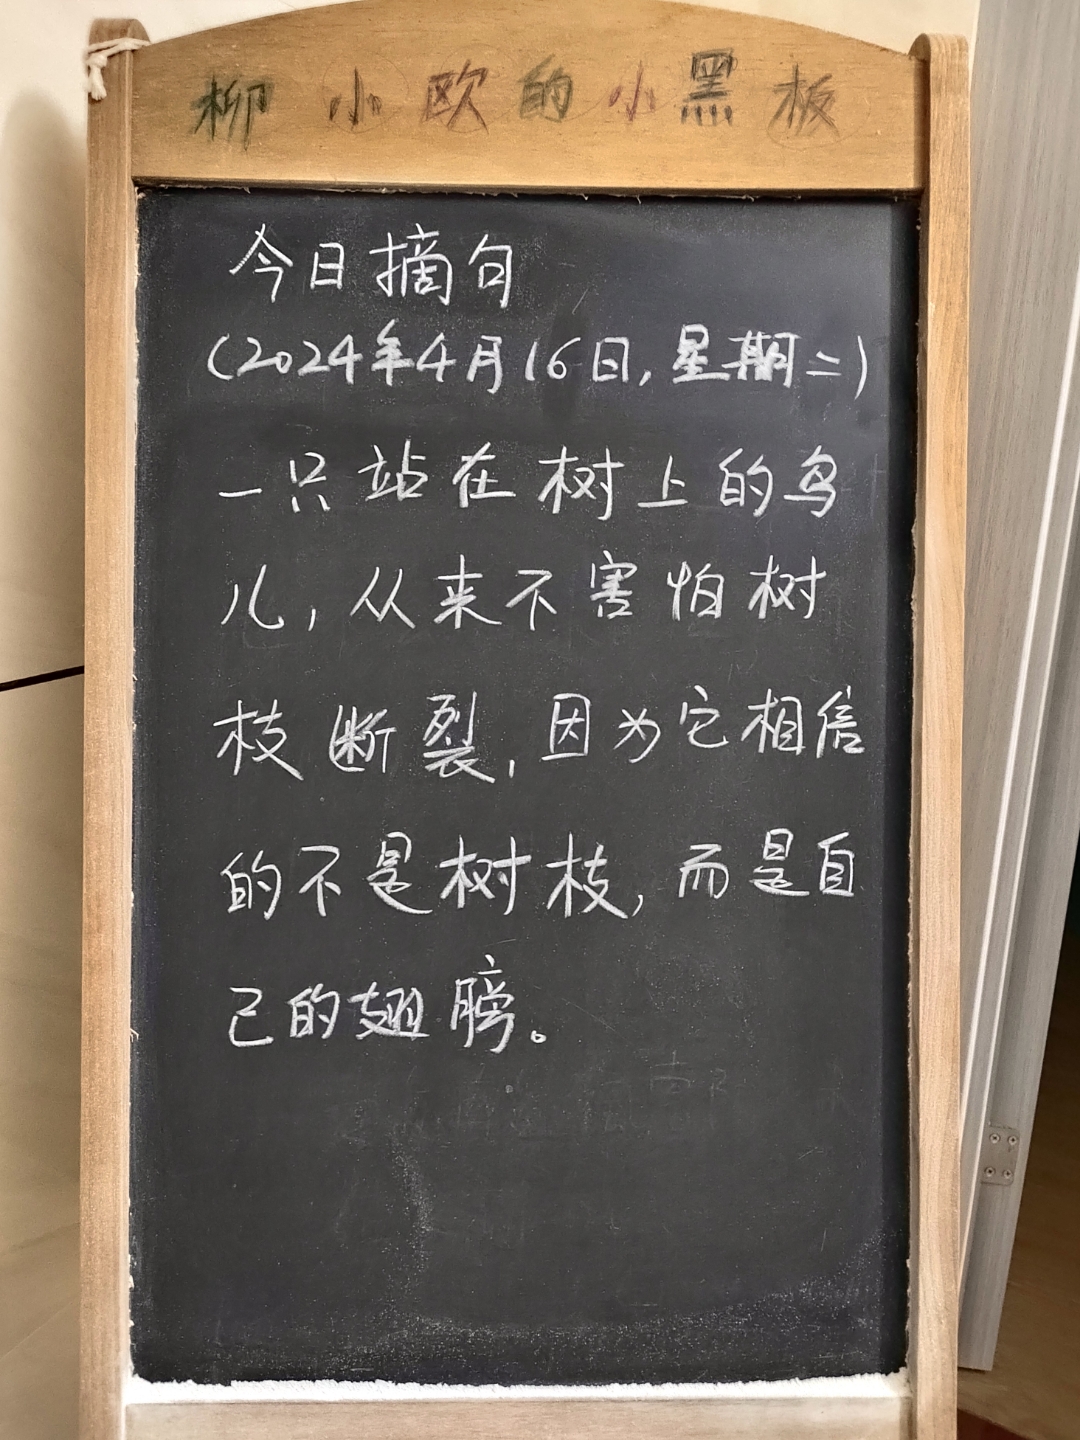 柳小欧的小黑板
今日摘句
(2024年4月16日,星期二)
一只站在树上的鸟
儿,从来不害怕树
枝断裂,因为它相信
的不是树枝,而是自
己的翅膀。